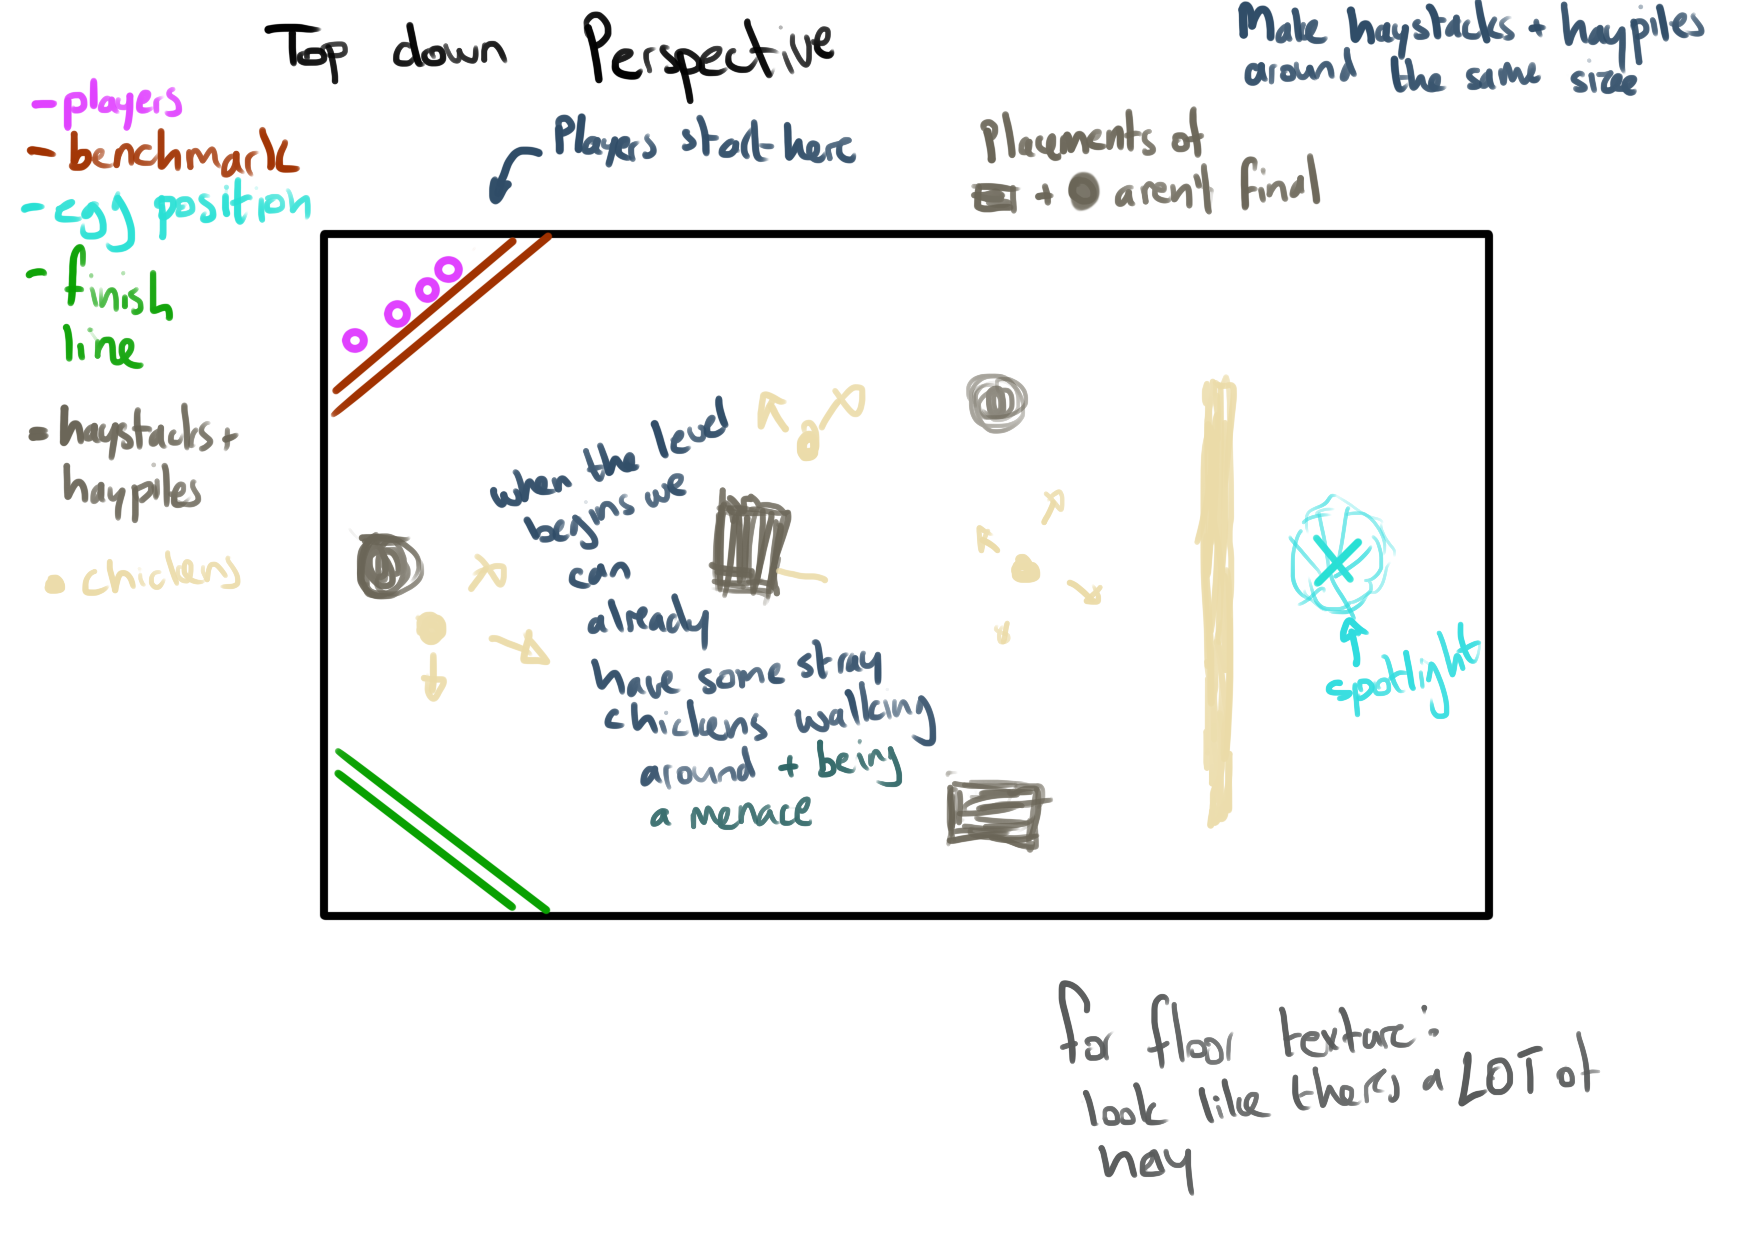 Top down Perspective
Make haystacks + haypiles
around the same sizee
- players
- benchmark
- egg position
- finish
line
- haystacks +
haypiles
chickens
Players start here
Placements of
+ aren't final
when the level
begins we
can
already
have some stray
chickens walking
around + being
a menace
spotlight
for floor texture:
look like theres a LOT of
hay